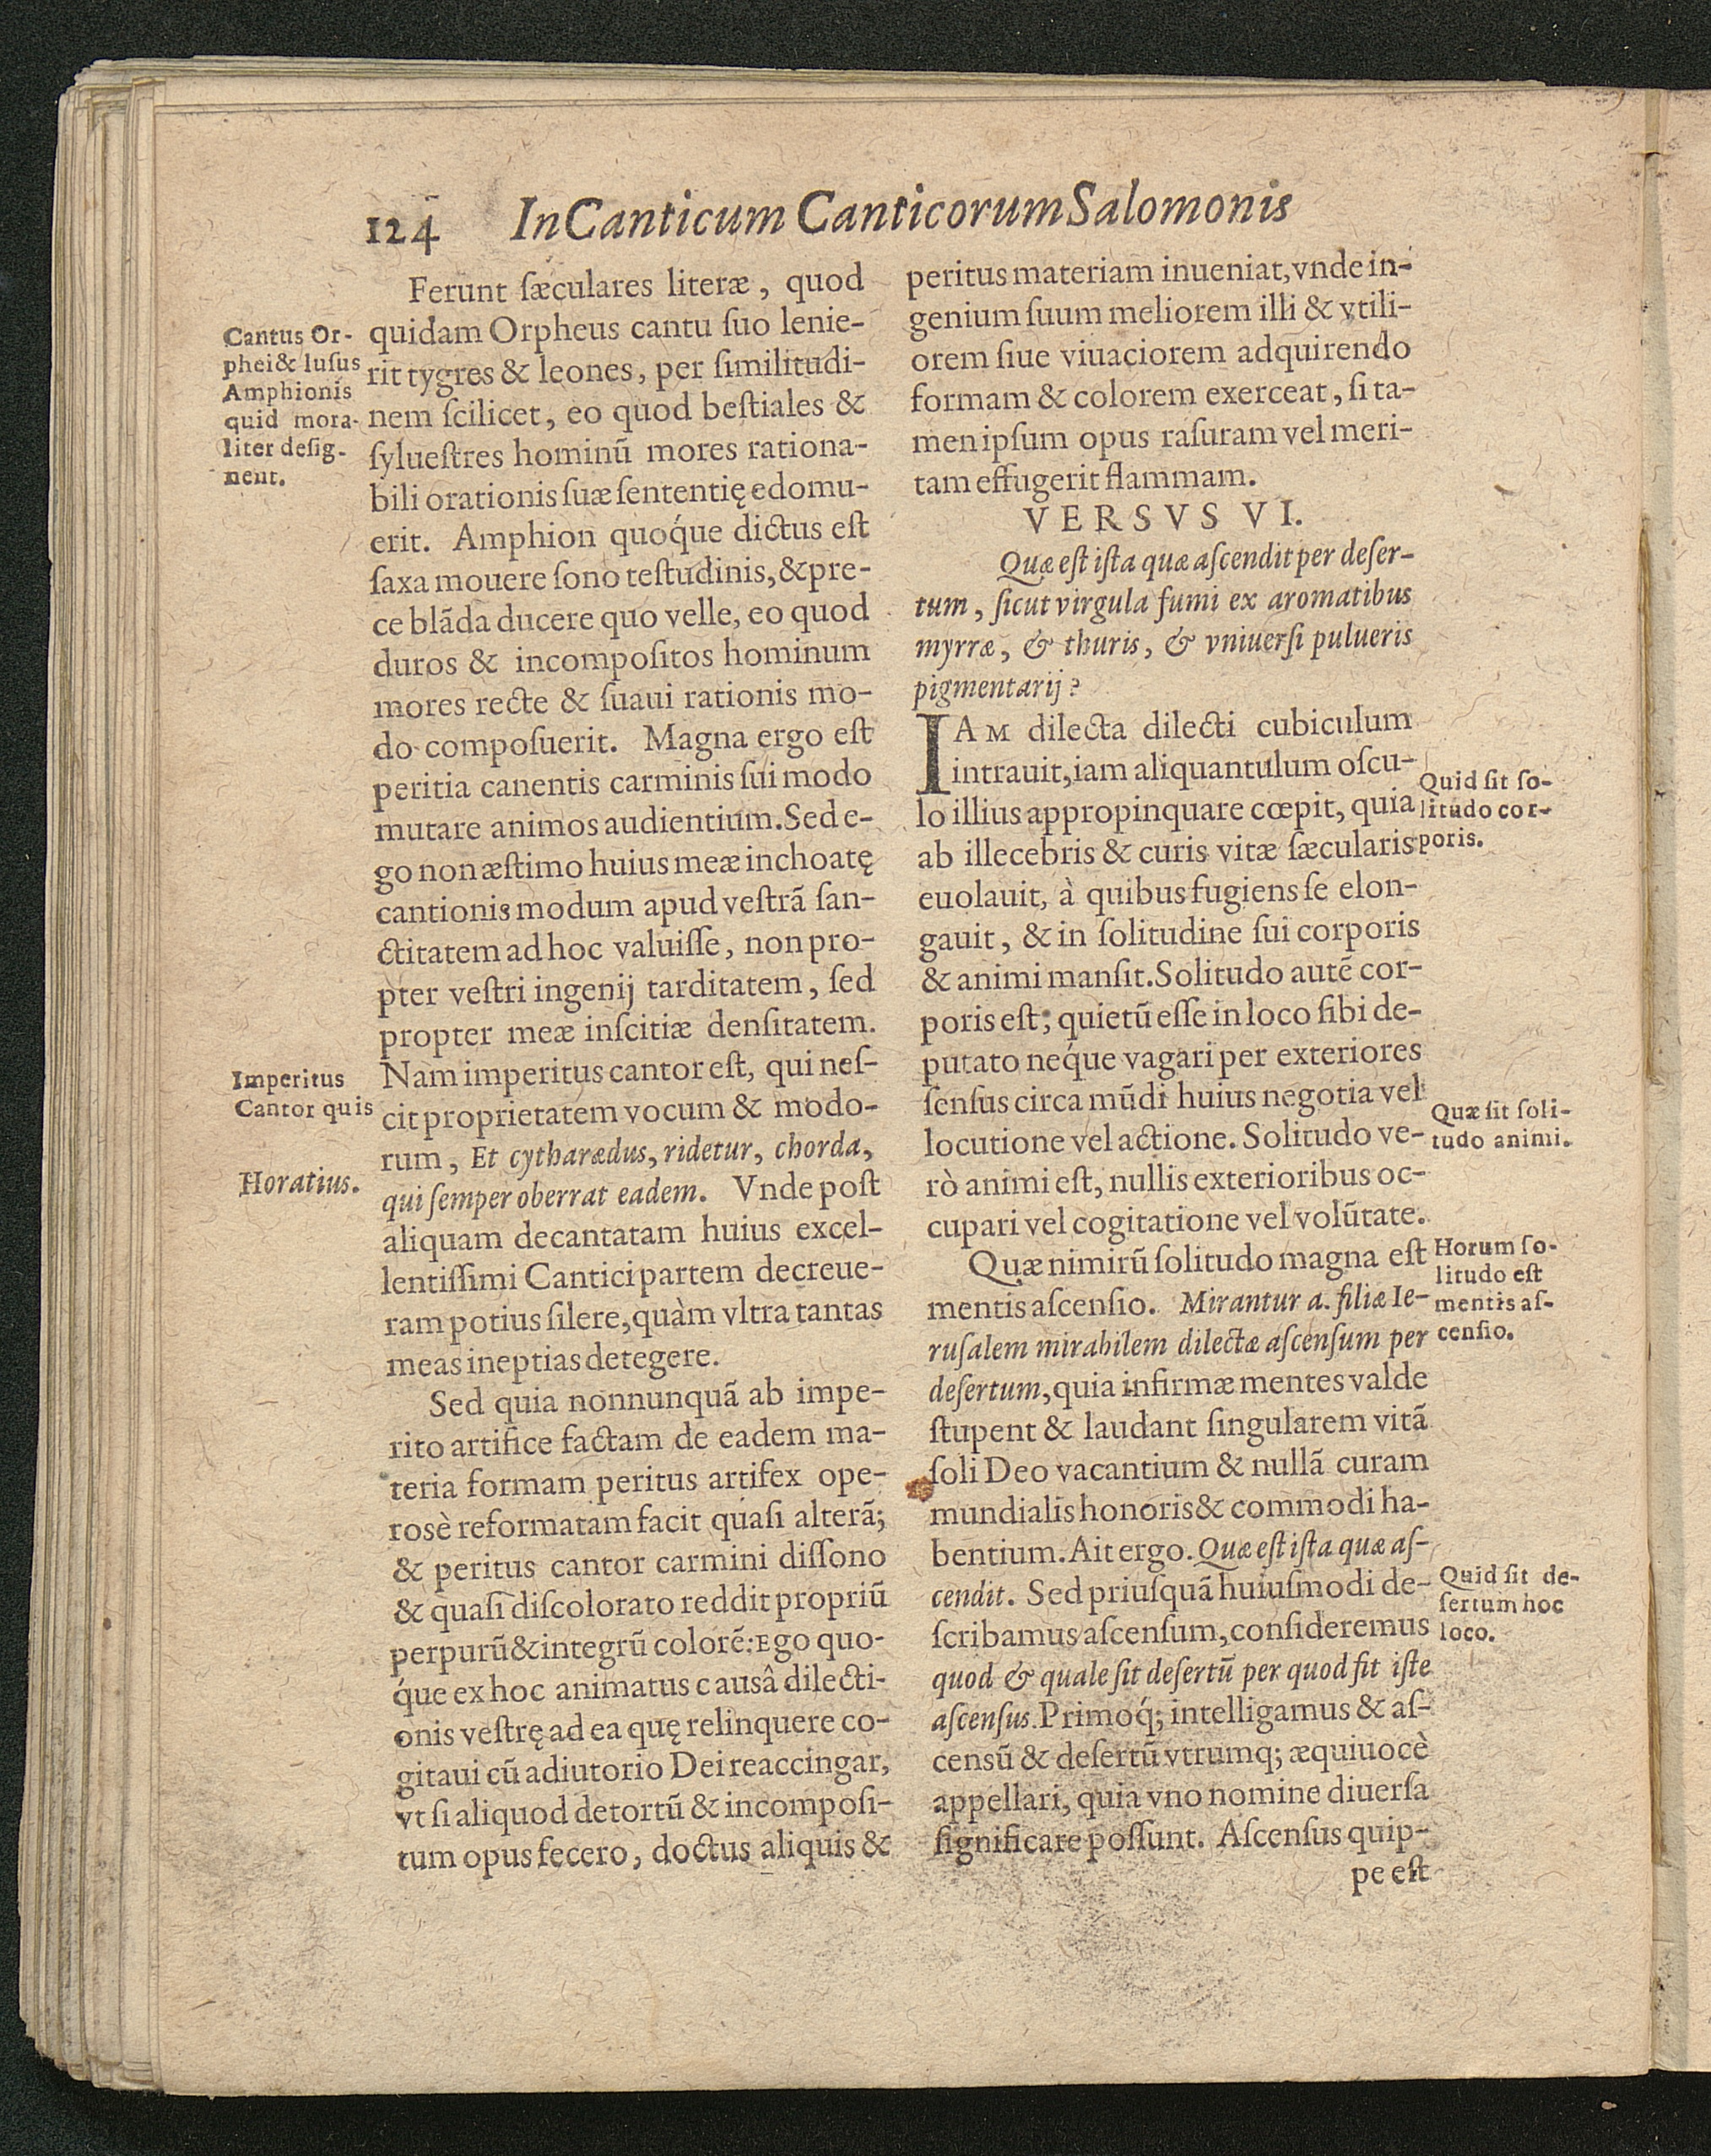 124 In Canticum Canticorum Salomonis
Cantus Or-
phei & luſus
Amphionis
quid mora-
liter deſig-
nent.
Imperitus
Cantor quis
Horatius.
Ferunt ſæculares literæ, quod
quidam Orpheus cantu ſuo lenie-
rit tygres & leones, per ſimilitudi-
nem ſcilicet, eo quod beſtiales &
ſylueſtres hominũ mores rationa-
bili orationis ſuæ ſententię edomu-
erit. Amphion quoq́ue dictus eſt
ſaxa mouere ſono teſtudinis, & pre-
ce blãda ducere quo velle, eo quod
duros & incompoſitos hominum
mores recte & ſuaui rationis mo-
do compoſuerit. Magna ergo eſt
peritia canentis carminis ſui modo
mutare animos audientium. Sed e-
go non æſtimo huius meæ inchoatę
cantionis modum apud veſtrã ſan-
ctitatem ad hoc valuiſſe, non pro-
pter veſtri ingenij tarditatem, ſed
propter meæ inſcitiæ denſitatem.
Nam imperitus cantor eſt, qui neſ-
cit proprietatem vocum & modo-
rum, Et cytharædus, ridetur, chorda,
qui ſemper oberrat eadem. Vnde poſt
aliquam decantatam huius excel-
lentiſſimi Cantici partem decreue-
ram potius ſilere, quàm vltra tantas
meas ineptias detegere.
Sed quia nonnunquã ab impe-
rito artifice factam de eadem ma-
teria formam peritus artifex ope-
rosè reformatam facit quaſi alterã;
& peritus cantor carmini diſſono
& quaſi diſcolorato reddit propriũ
perpurũ & integrũ colorẽ: Ego quo-
q́ue ex hoc animatus causâ dilecti-
onis veſtrę ad ea quę relinquere co-
gitaui cũ adiutorio Dei reaccingar,
vt ſi aliquod detortũ & incompoſi-
tum opus fecero, doctus aliquis &
peritus materiam inueniat, vnde in-
genium ſuum meliorem illi & vtili-
orem ſiue viuaciorem adquirendo
formam & colorem exerceat, ſi ta-
men ipſum opus raſuram vel meri-
tam effugerit flammam.
VERSVS VI.
Quæ eſt iſta quæ aſcendit per deſer-
tum, ſicut virgula fumi ex aromatibus
myrræ, & thuris, & vniuerſi pulueris
pigmentarij?
IAM dilecta dilecti cubiculum
intrauit, iam aliquantulum oſcu-
lo illius appropinquare cœpit, quia
ab illecebris & curis vitæ ſæcularis
euolauit, à quibus fugiens ſe elon-
gauit, & in ſolitudine ſui corporis
& animi manſit. Solitudo autẽ cor-
poris eſt; quietũ eſſe in loco ſibi de-
putato neq́ue vagari per exteriores
ſenſus circa mũdi huius negotia vel
locutione vel actione. Solitudo ve-
rò animi eſt, nullis exterioribus oc-
cupari vel cogitatione vel volũtate.
Quæ nimirũ ſolitudo magna eſt
mentis aſcenſio. Mirantur a. filiæ Ie-
ruſalem mirabilem dilectæ aſcenſum per
deſertum, quia infirmæ mentes valde
ſtupent & laudant ſingularem vitã
ſoli Deo vacantium & nullã curam
mundialis honoris & commodi ha-
bentium. Ait ergo. Quæ eſt iſta quæ aſ-
cendit. Sed priuſquã huiuſmodi de-
ſcribamus aſcenſum, conſideremus
quod & quale ſit deſertũ per quod fit iſte
aſcenſus. Primoq́; intelligamus & aſ-
censũ & deſertũ vtrumq; æquiuocè
appellari, quia vno nomine diuerſa
ſignificare poſſunt. Aſcenſus quip-
pe eſt
Quid ſit ſo-
litudo cor-
poris.
Quæ ſit ſoli-
tudo animi.
Horum ſo-
litudo eſt
mentis aſ-
cenſio.
Quid ſit de-
ſertum hoc
loco.